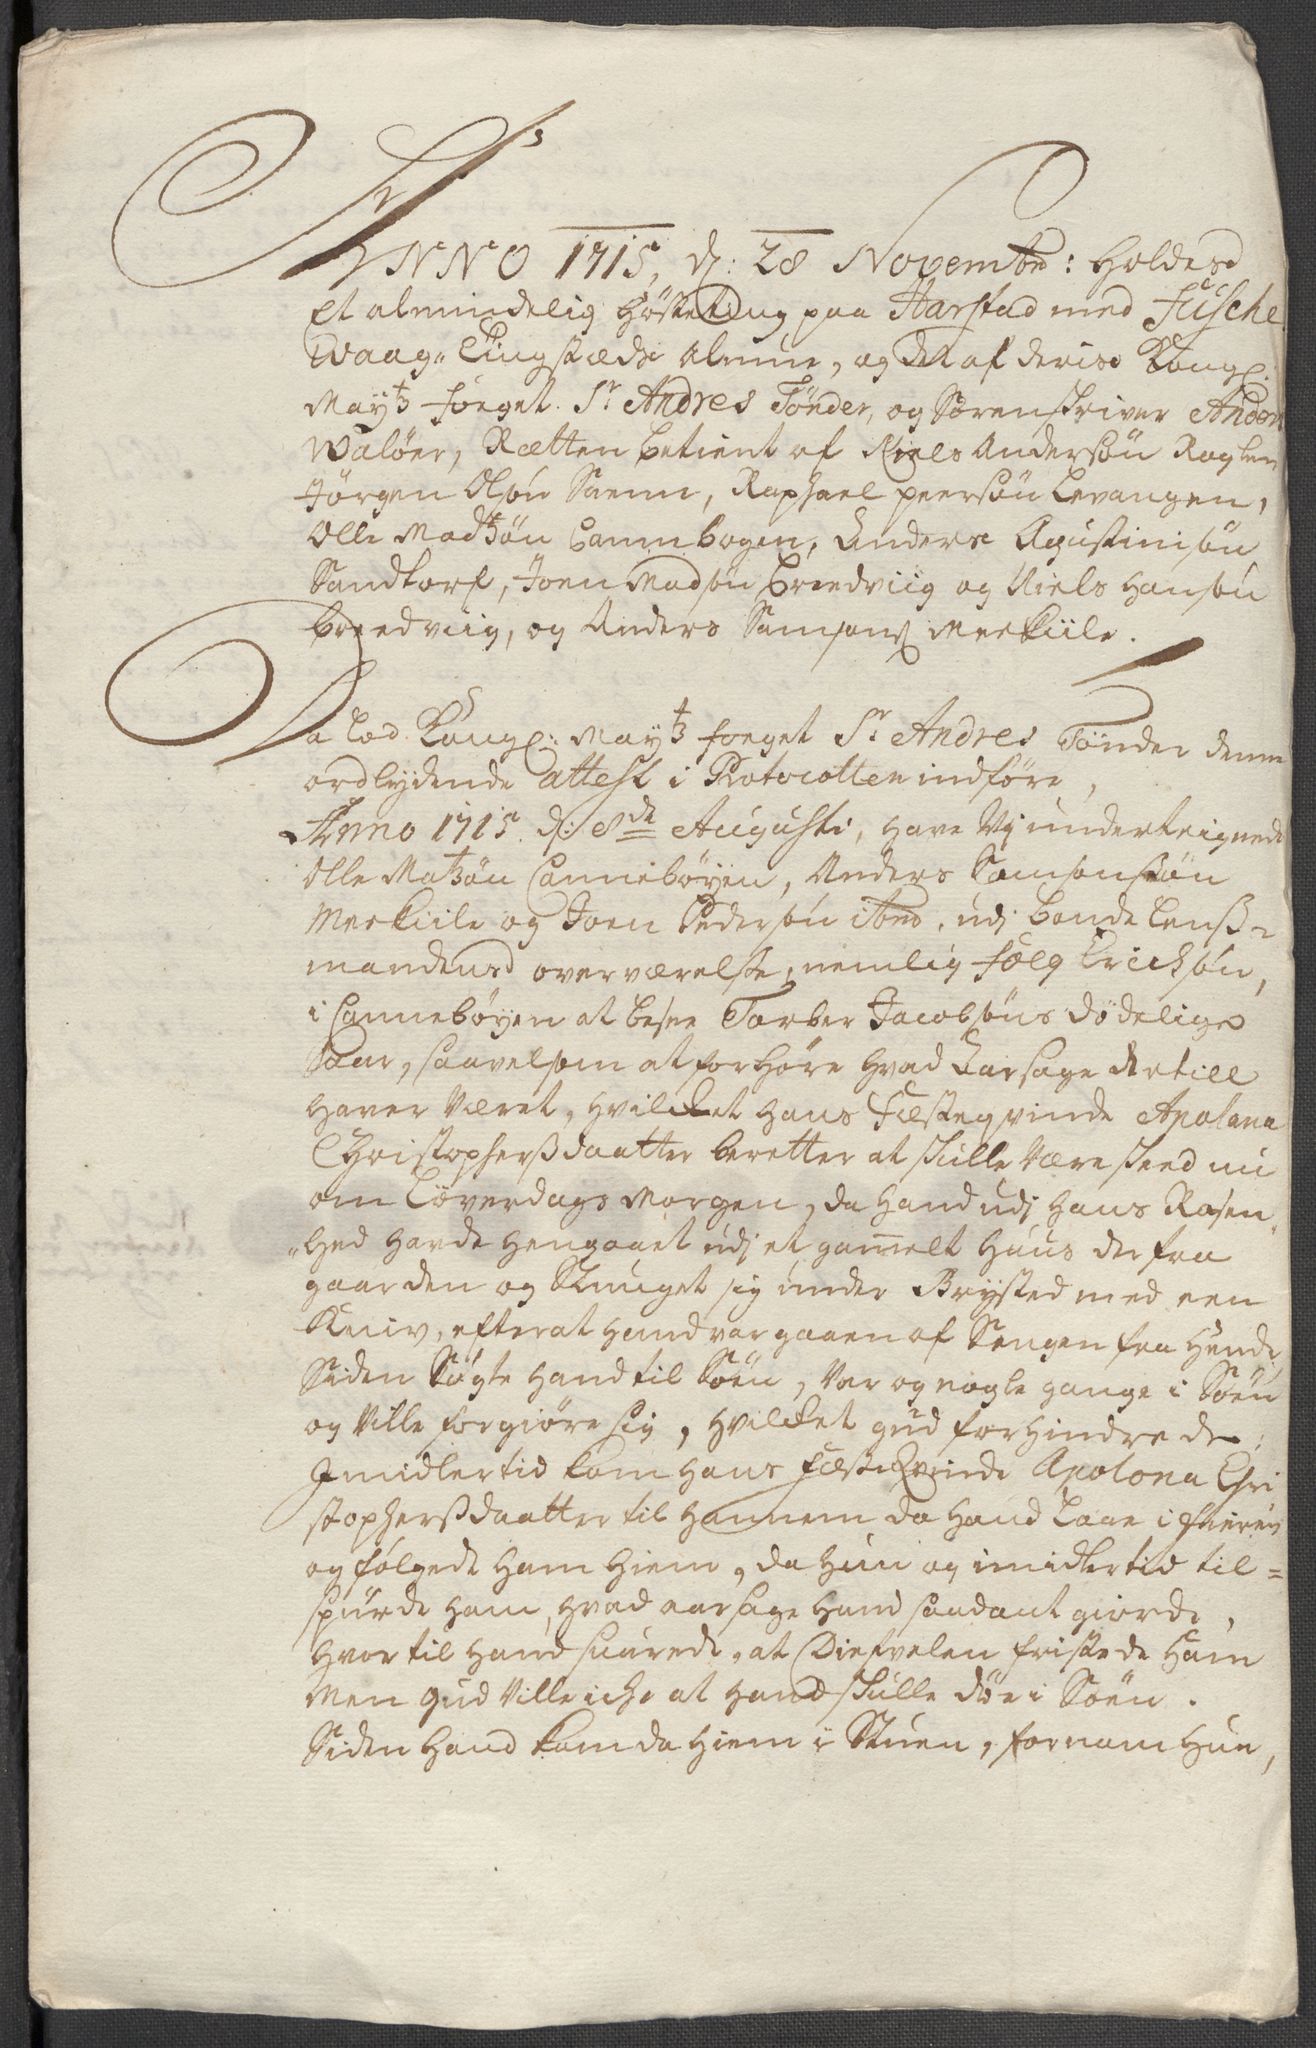 ANNO 1715, d: 28 Novembr: Holdes
Et almindelig Høsteting paa Harstad med Fusche
Waag" Tingstæds Almue, og det af deris Kongl:
Mayts foeget Sr Andres Tönder, og Sorenskriver Anders
Walöer, Rætten betient af Niels Andersøn Roglen
Jørgen Olsøn Saem, Raphael peersøn Levangen,
Olle Madsøn Cannebogen, Anders Agustinisøn
Sandtorf, Joen Madsøn bredviig og Niels Hansøn
bredviig, og Anders Samsons Merkiile.
Da lod Kongl: Mayts foeget Sr Andres Tönder denne
ordlydende attest i Protocollen indføre,
Anno 1715 d: 8de Augusti, have Wj underteignede
Olle Matzøn Cannebøyen, Anders Samsonsøn
Merkiile og Joen Pedersøn ibid. udj bonde Lenß=
mandens overværelse, nemlig Fölg Ericksøn,
i Cannebøyen at besee Torber Jacobsøns dödelige
Saar, saavelsom at forhøre hvad Aarsage dertill
haver Været, hvilcket hans Fæsteqvinde Apolona
Christopherßdaatter beretter at skulle Være skeed nu
om Löverdags Morgen, da hand udj hans Rasen"
"hed havde hengaaet udj et gammelt Huus der fra
gaarden og Stunget sig under Brysted med een
Kniv, efter at hand var gaaen af Sengen fra Hende,
Siden Søgte hand til Søen, Var og nogle gange i Søen
og Ville forgiøre sig, hvilcket gud forhindrede;
Imidlertid kom hans Fæsteqvinde Apolona Chri
stopherßdaatter til hannem da hand laae i fieren
og følgede ham hiem, da hun og imidlertid til=
spurde ham, hvad aarsage hand saadant giorde,
hvortil hand svarede, at Diefvelen fristede ham
Men gud Ville iche at hand skulle døe i Søen.
Siden hand kom da hiem i Stuen, fornam hun,